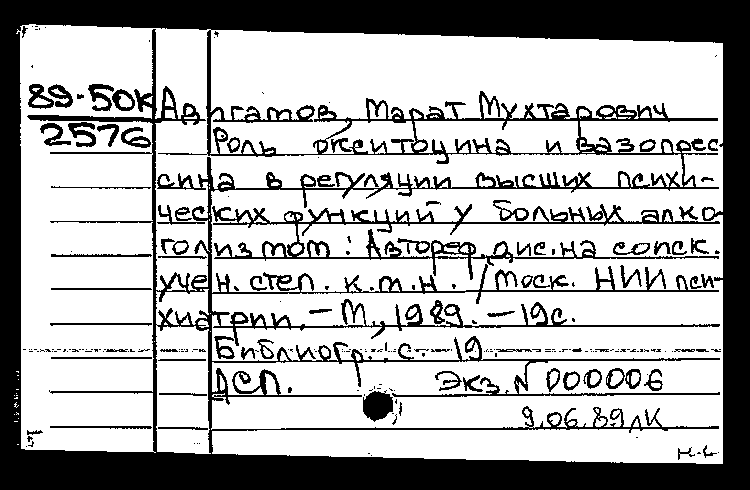 89-50К
2576
Адигамов, Марат Мухтарович
Роль окситоцина и вазопрес-
сина в регуляции высших психи-
ческих функций у больных алко-
голизмом : Автореф. дис. на соиск.
учен. степ. к.м.н. / Моск. НИИ пси-
хиатрии. – М., 1989. – 19с.
Библиогр.: с. 19.
ДСП. Экз. № 000006
9.06.89 лК
н-с